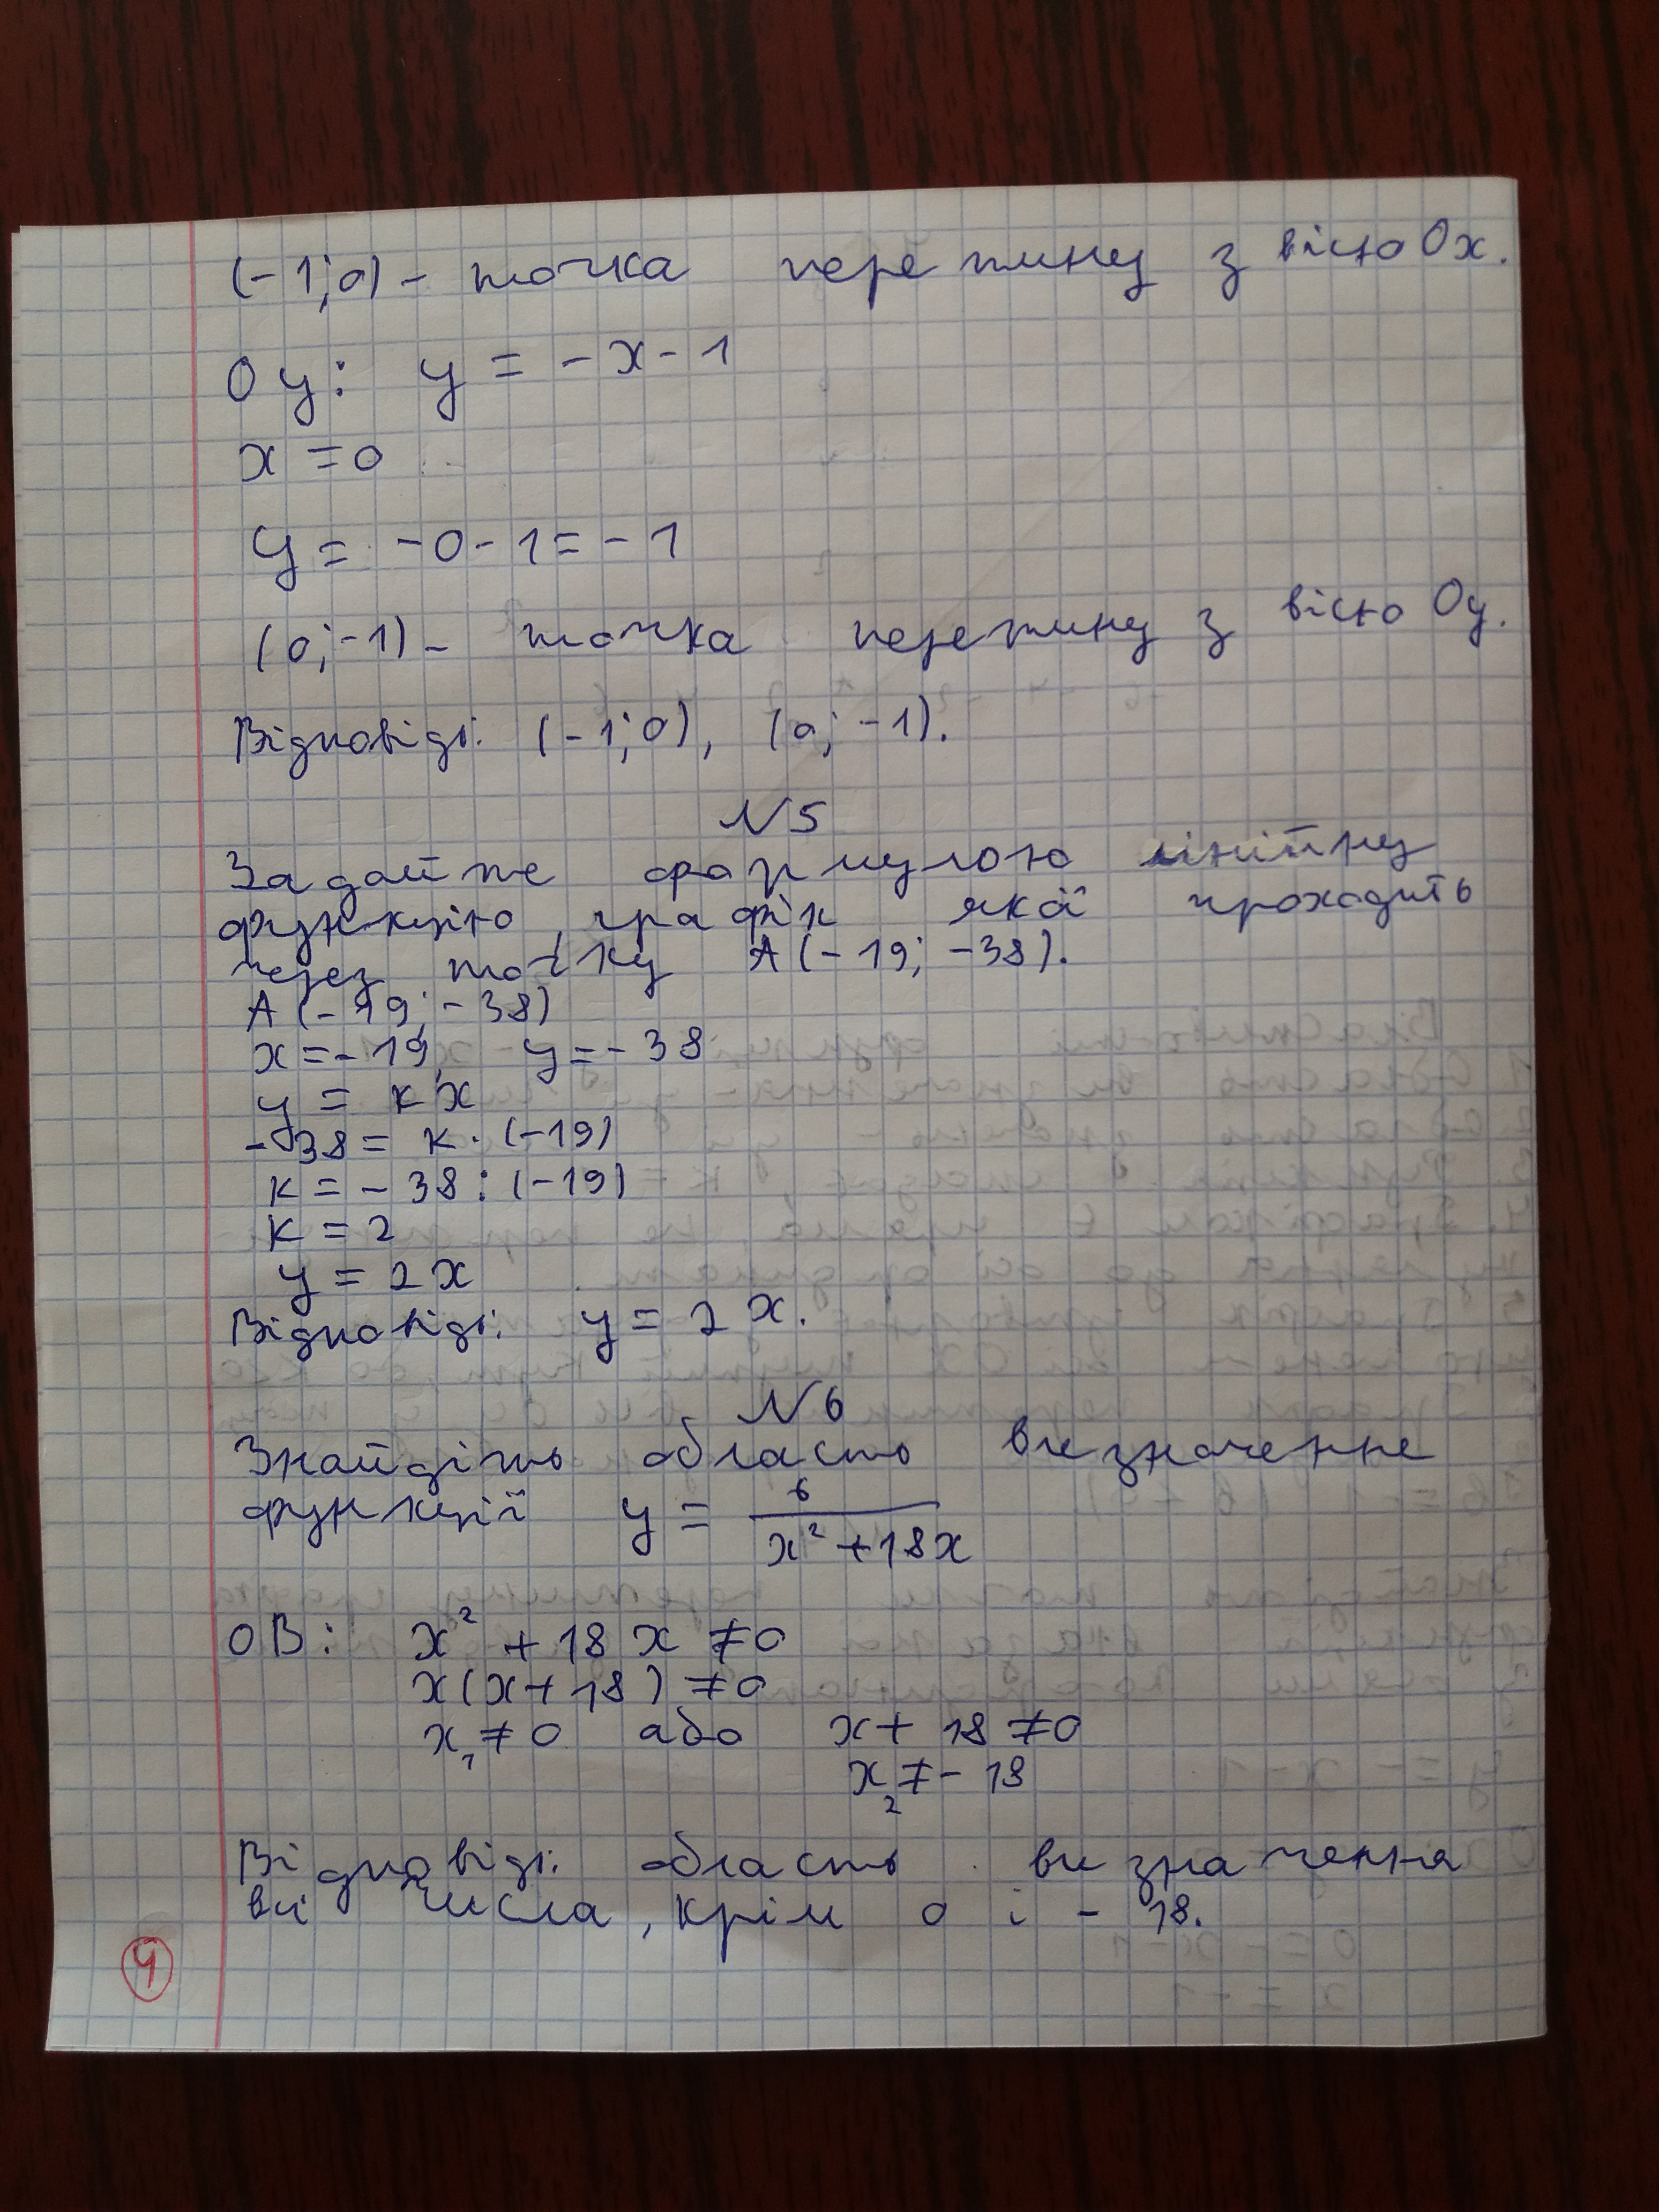 (-1; 0) - точка перетину з вісю Ох.
Оу: у = -х - 1
х = 0
у = -0 - 1 = -1
(0; -1) - точка перетину з вісю Оу.
Відповідь: (-1; 0), (0; -1).
№5
Задайте формулою лінійну
функцію, графік якої проходить
через точку А(-19; -38).
А(-19; -38)
х = -19, у = -38
у = кх
-38 = к · (-19)
к = -38 : (-19)
к = 2
у = 2х
Відповідь: у = 2х.
№6
Знайдіть область визначення
функції у = 6/(х² + 18х)
ОВ: х² + 18х ≠ 0
х(х + 18) ≠ 0
х₁ ≠ 0 або х + 18 ≠ 0
х₂ ≠ -18
Відповідь: область визначення
всі числа, крім 0 і -18.
4